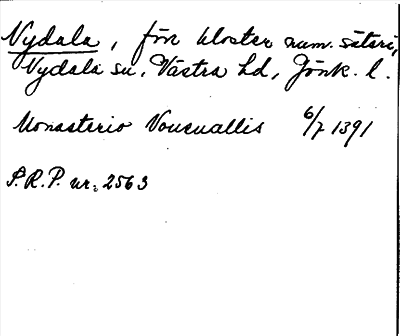 Nydala, förr kloster num. säteri,
Nydala sn, Västra hd, Jönk. l.
Monasterio Voueuallis 6/7 1391
S.R.P. nr. 2563